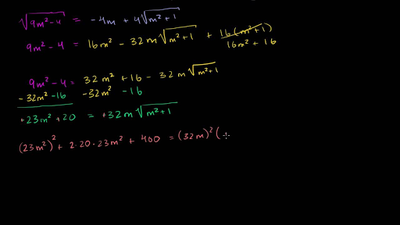 √(9m²-4) = -4m + 4√(m²+1)
9m²-4 = 16m² - 32m√(m²+1) + 16(m²+1)
16m²+16
9m²-4 = 32m² + 16 - 32m√(m²+1)
-32m²-16 -32m² -16
+23m²+20 = +32m√(m²+1)
(23m²)² + 2·20·23m² + 400 = (32m)² (